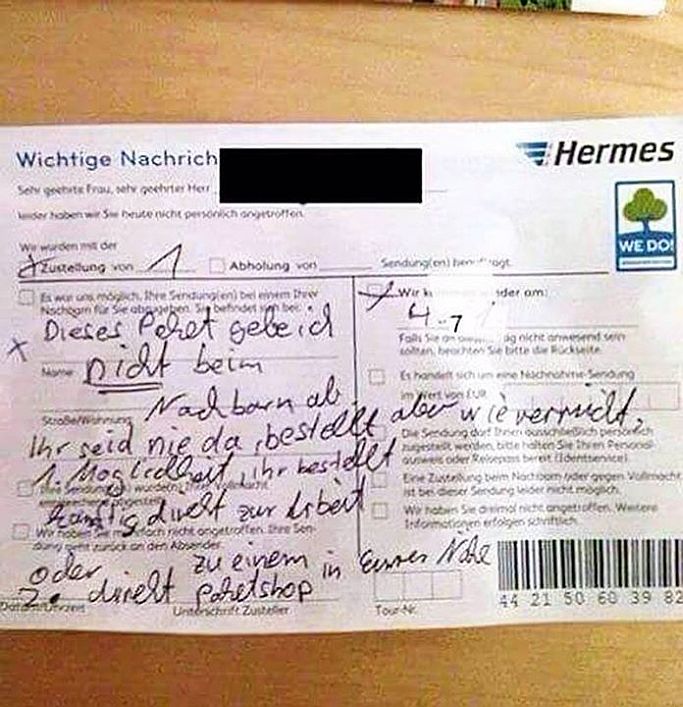 Wichtige Nachrich
Hermes
Sehr geehrte Frau, sehr geehrter Herr
leider haben wir Sie heute nicht persönlich angetroffen.
WE DO!
Wir wurden mit der
Zustellung von 1 Abholung von Sendung(en) beauftragt.
Es war uns möglich, Ihre Sendung(en) bei einem Ihrer
Nachbarn für Sie abzugeben. Sie befindet sich bei:
Dieses Paket gebe ich
Name nicht beim
Straße/Wohnung Nachbarn ab.
Ihr seid nie da, bestellt aber wie verrückt,
1. Möglichkeit, ihr bestellt
künftig direkt zur Arbeit
Wir haben Sie nicht angetroffen. Ihre Sen-
dung geht zurück an den Absender.
oder zu einem in Eurer Nähe
2. direkt Paketshop
Datum/Uhrzeit Unterschrift Zusteller Tour-Nr.
Wir der am:
4-7
Falls Sie an ag nicht anwesend sein
sollten, beachten Sie bitte die Rückseite.
Es handelt sich um eine Nachnahme-Sendung
im Wert von EUR
Die Sendung darf Ihnen ausschließlich persönlich
zugestellt werden, bitte halten Sie Ihren Personal-
ausweis oder Reisepass bereit (Identservice).
Eine Zustellung beim Nachbarn oder gegen Vollmacht
ist bei dieser Sendung leider nicht möglich.
Wir haben Sie dreimal nicht angetroffen. Weitere
Informationen erfolgen schriftlich.
44 21 50 60 39 82